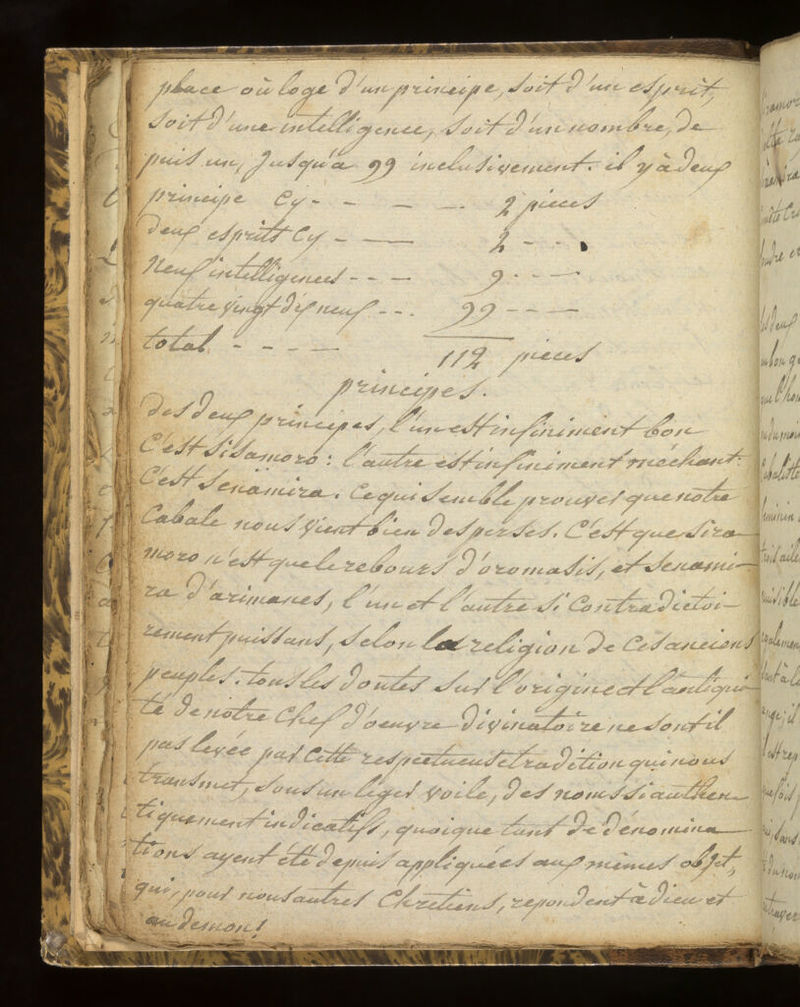 place où loge d'un principe, soit d'un esprit,
soit d'une intelligence, soit d'un nombre, de
puis un, Jusqu'a 99 inclusivement. il y à deux
principe Cy - - - - 2 pieces
deux esprits Cy - - 2 - - -
Neuf intelligences - - - 9 - - -
quatre vingt dix neuf - - - 99 - - -
total - - - - 112 pieces
principes.
des deux principes, l'un est infiniment bon
C'est Sisamoro: l'autre est infiniment méchant:
C'est Senamira. Ce qui semble prouver que notre
Cabale nous vient bien des perses. C'est que Siza-
moro n'est que le rebours d'oromasis, et Senami-
ra d'arimanes, l'un et l'autre si Contradictoi-
rement puissans, selon la religion de Ces anciens
peuples. tous les doutes sur l'origine et l'antiqui-
té de notre Chef d'oeuvre divinatoire ne sont il
pas levée par Cette respectueuse tradition qui nous
transmet, sous un leger voile, des noms si authen-
tiquement indicatifs, quoique tant de dénomina-
tions ayent été depuis appliquées aux mêmes objet,
qui, pour nous autres Chretiens, repondent à dieu et
au demon!